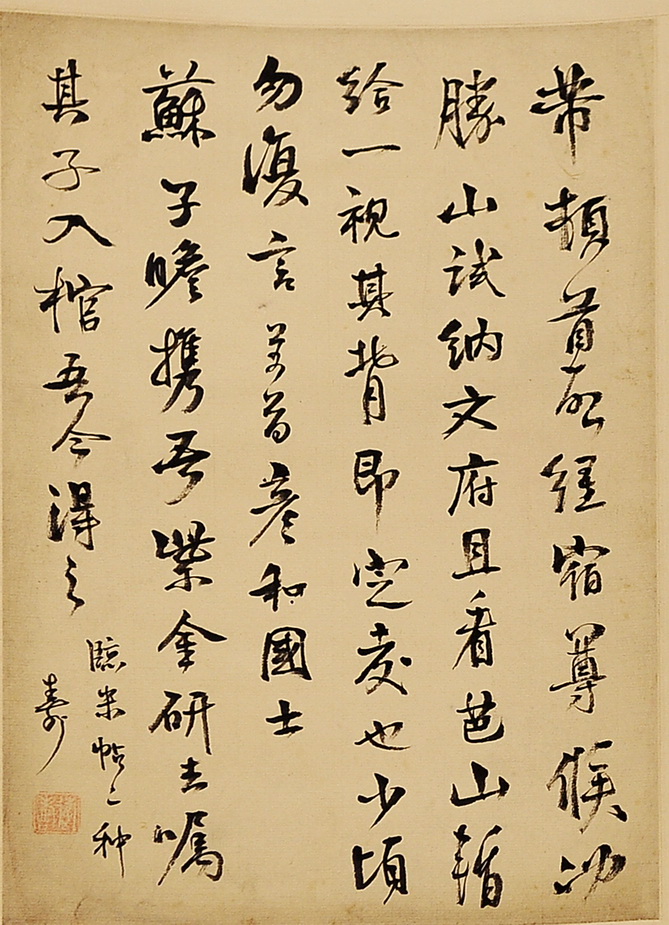 芾頓首啓經宿尊候沖
勝山試納文府且看芭山暫
給一視其背即定交也少頃
勿復言芾頓首彥和國士
蘇子瞻攜吾紫金研去嘱
其子入棺吾今得之
臨米帖二种
壽